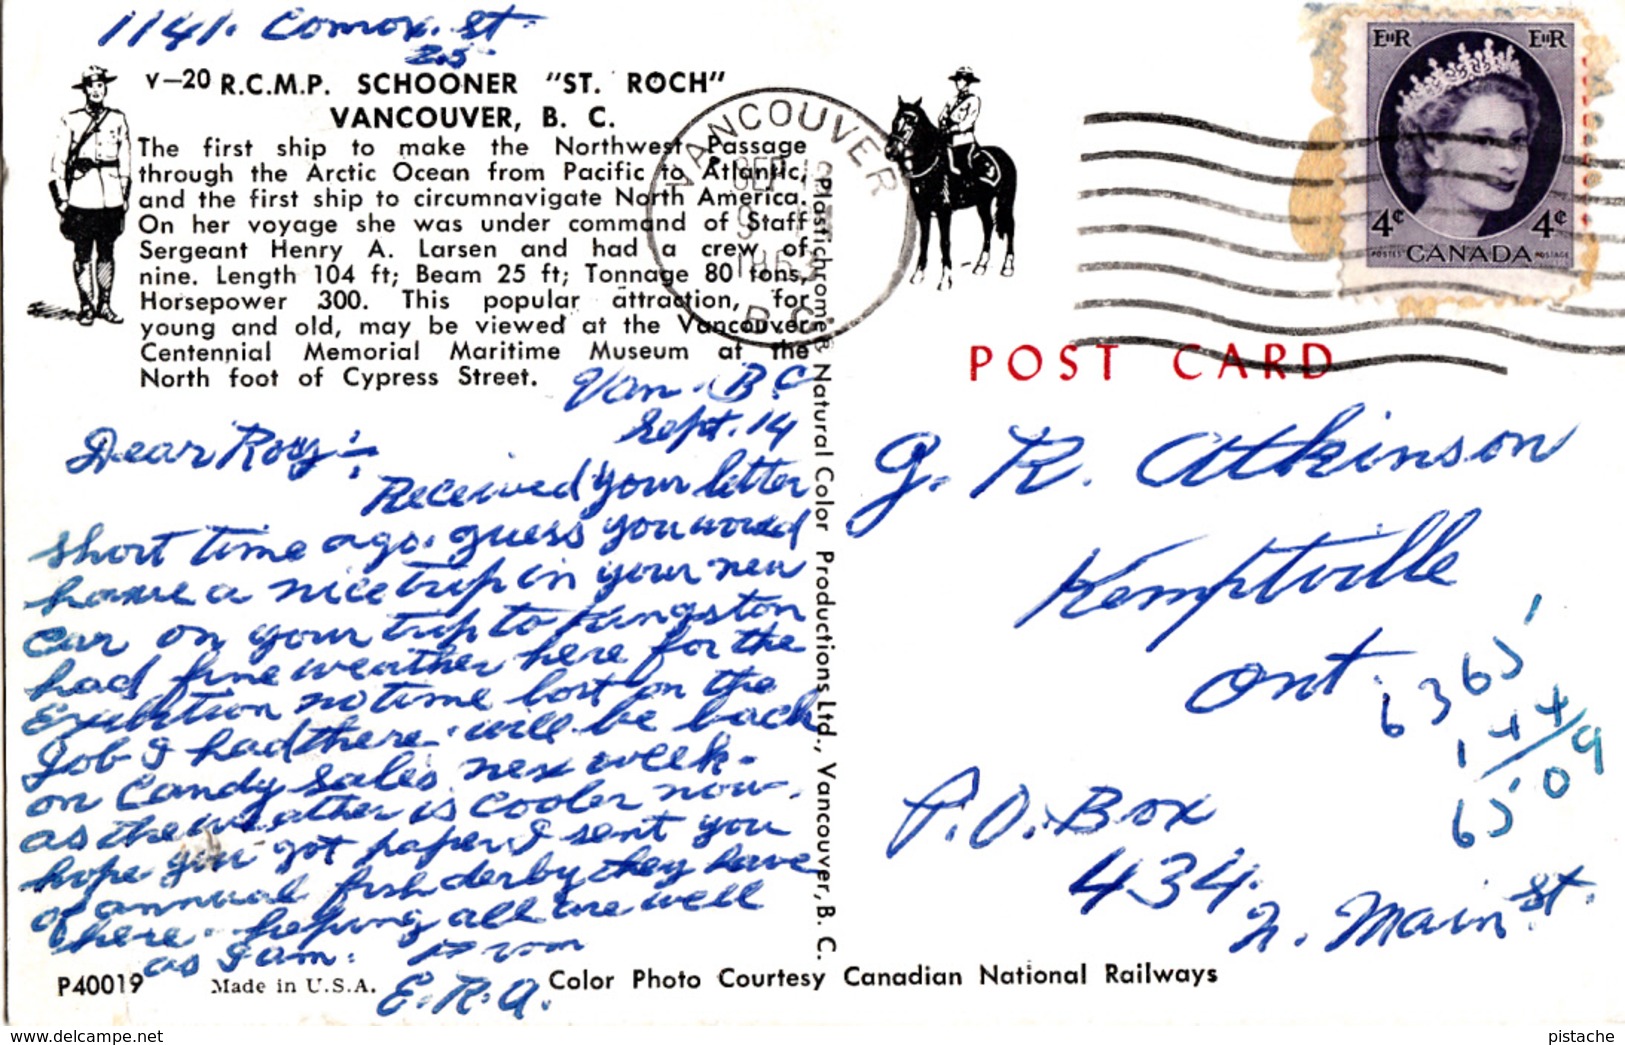 1141. Comox. St
25
V-20 R.C.M.P. SCHOONER "ST. ROCH"
VANCOUVER, B. C.
The first ship to make the Northwest Passage
through the Arctic Ocean from Pacific to Atlantic,
and the first ship to circumnavigate North America.
On her voyage she was under command of Staff
Sergeant Henry A. Larsen and had a crew of
nine. Length 104 ft; Beam 25 ft; Tonnage 80 tons,
Horsepower 300. This popular attraction, for
young and old, may be viewed at the Vancouver
Centennial Memorial Maritime Museum at the
North foot of Cypress Street.
Van. B.C
Sept. 14
Dear Roy:-
Received your letter
short time ago. guess you would
have a nice trip in your new
car on your trip to Kingston
had fine weather here for the
Exibition no time lost on the
Job I had there. will be back
on Candy Sales next week.
as the weather is cooler now.
hope you got paper I sent you
of annual fish derby they have
here. hoping all are well
as I am. From
E.R.A.
P40019
Made in U.S.A.
Color Photo Courtesy Canadian National Railways
Plastichrome® Natural Color Productions Ltd., Vancouver, B. C.
VANCOUVER
SEP
1963
B.C.
EIIR EIIR
4¢ 4¢
POSTES CANADA POSTAGE
POST CARD
G. R. Atkinson
Kemptville
Ont.
6365
144
6509
P.O. Box
434.
N. Main St.
www.delcampe.net
pistache